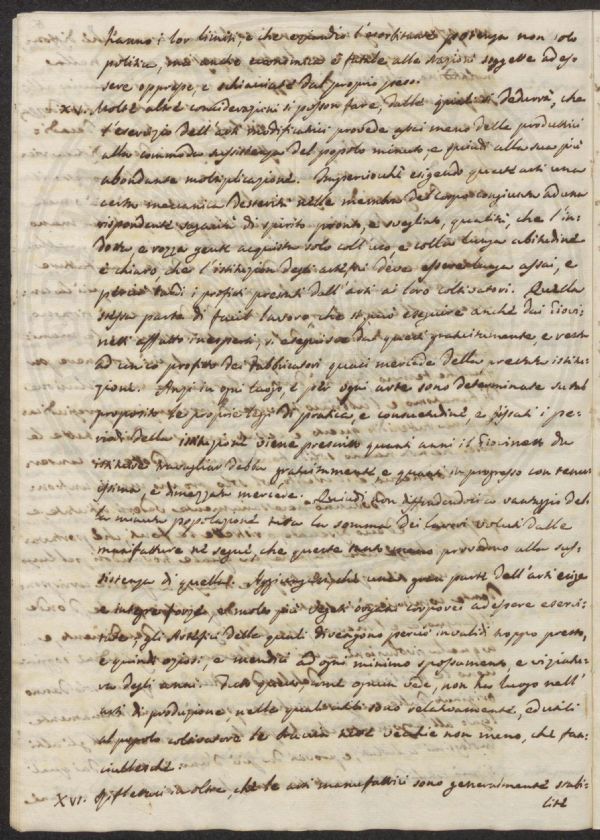 hanno i lor limiti, e che eziandio l'esorbitante potenza non solo
politica, ma anche economica è fatale alle nazioni soggette ad es-
sere oppresse, e schiacciate dal proprio peso.
XV. Molte altre considerazioni si posson fare, dalle quali si dedurrà, che
l'esercizio dell'arti modificatrici provede assai meno delle produttrici
alla commoda sussistenza del popolo minuto, e quindi alla sua più
abondante moltiplicazione. Imperciochè esigendo quest'arti una
certa meccanica destrità nelle membra del corpo congiunta ad una
rispondente sagacità di spirito pronto, e svegliato, qualità, che l'in-
dotta e rozza gente acquista solo coll'uso, e colla lunga abitudine
è chiaro, che l'istituzion degli artefici deve essere lunga assai, e
perciò tardi i profitti prestati dall'arti ai loro coltivatori. Quella
istessa parte di facil lavoro che si può eseguire anche dai giovi-
netti affatto inesperti, si eseguisce dai quali gratuitamente e resta
ad unico profitto dei fabbricatori quasi mercede della prestata istitu-
zione. Anzi in ogni luogo, e per ogni arte sono determinate su tal
proposito le proprie leggi di pratica, e consuetudine, e fissati i pe-
riodi della istituzione viene prescritto quanti anni il giovinetto da
istituire travagliar debba gratuitamente e quanti in progresso con tenuis-
sima, e dimezzata mercede. Quindi non diffondendosi a vantaggio del-
la minuta popolazione tutta la somma dei lavori voluti dalle
manifatture ne segue, che queste tanto meno provedono alla sus-
sistenza di quella. Aggiungasi, che una gran parte dell'arti esige
e integre forze, e molto più vegeti organi corporei ad essere eserci-
tate, gli artefici delle quali divengono perciò invalidi troppo presto,
e quindi oziosi, e mendici ad ogni minimo spossamento, e vizziatu-
ra degli anni. Tutto questo, come ognun vede, non ha luogo nell'
arti di produzione, nelle quali utili sono relativamente, ed utili
al popolo coltivatore le braccia tanto vecchie non meno, che fan-
ciullesche.
XVI. Rifletterci inoltre, che le arti manufattrici sono generalmente stabi-
lite